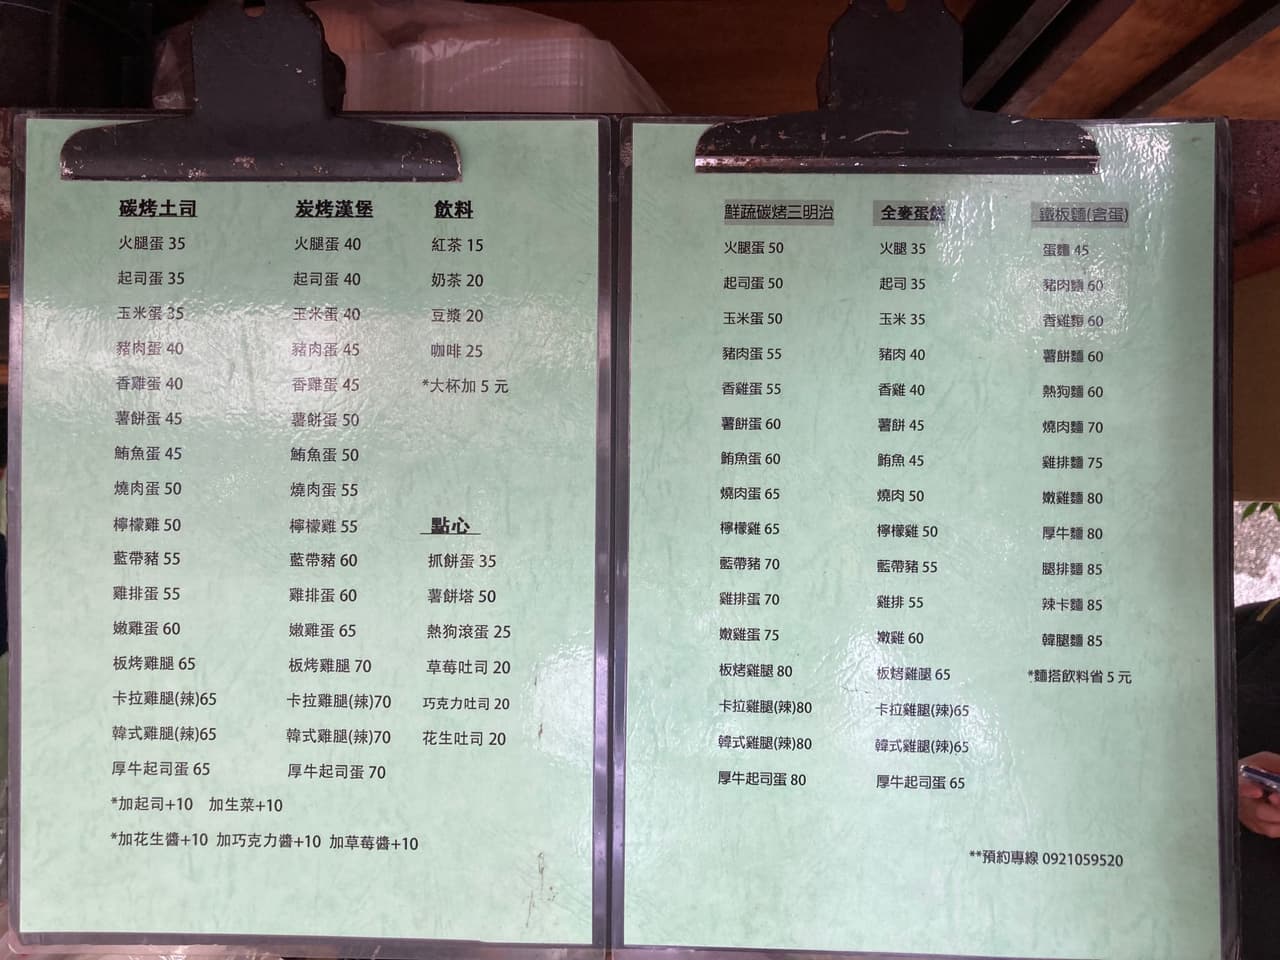 碳烤土司
火腿蛋 35
起司蛋 35
玉米蛋 35
豬肉蛋 40
香雞蛋 40
薯餅蛋 45
鮪魚蛋 45
燒肉蛋 50
檸檬雞 50
藍帶豬 55
雞排蛋 55
嫩雞蛋 60
板烤雞腿 65
卡拉雞腿(辣)65
韓式雞腿(辣)65
厚牛起司蛋 65
*加起司+10 加生菜+10
*加花生醬+10 加巧克力醬+10 加草莓醬+10
炭烤漢堡
火腿蛋 40
起司蛋 40
玉米蛋 40
豬肉蛋 45
香雞蛋 45
薯餅蛋 50
鮪魚蛋 50
燒肉蛋 55
檸檬雞 55
藍帶豬 60
雞排蛋 60
嫩雞蛋 65
板烤雞腿 70
卡拉雞腿(辣)70
韓式雞腿(辣)70
厚牛起司蛋 70
飲料
紅茶 15
奶茶 20
豆漿 20
咖啡 25
*大杯加 5 元
點心
抓餅蛋 35
薯餅塔 50
熱狗滾蛋 25
草莓吐司 20
巧克力吐司 20
花生吐司 20
鮮蔬碳烤三明治
火腿蛋 50
起司蛋 50
玉米蛋 50
豬肉蛋 55
香雞蛋 55
薯餅蛋 60
鮪魚蛋 60
燒肉蛋 65
檸檬雞 65
藍帶豬 70
雞排蛋 70
嫩雞蛋 75
板烤雞腿 80
卡拉雞腿(辣)80
韓式雞腿(辣)80
厚牛起司蛋 80
全麥蛋餅
火腿 35
起司 35
玉米 35
豬肉 40
香雞 40
薯餅 45
鮪魚 45
燒肉 50
檸檬雞 50
藍帶豬 55
雞排 55
嫩雞 60
板烤雞腿 65
卡拉雞腿(辣)65
韓式雞腿(辣)65
厚牛起司蛋 65
鐵板麵(含蛋)
蛋麵 45
豬肉麵 60
香雞麵 60
薯餅麵 60
熱狗麵 60
燒肉麵 70
雞排麵 75
嫩雞麵 80
厚牛麵 80
腿排麵 85
辣卡麵 85
韓腿麵 85
*麵搭飲料省 5 元
**預約專線 0921059520